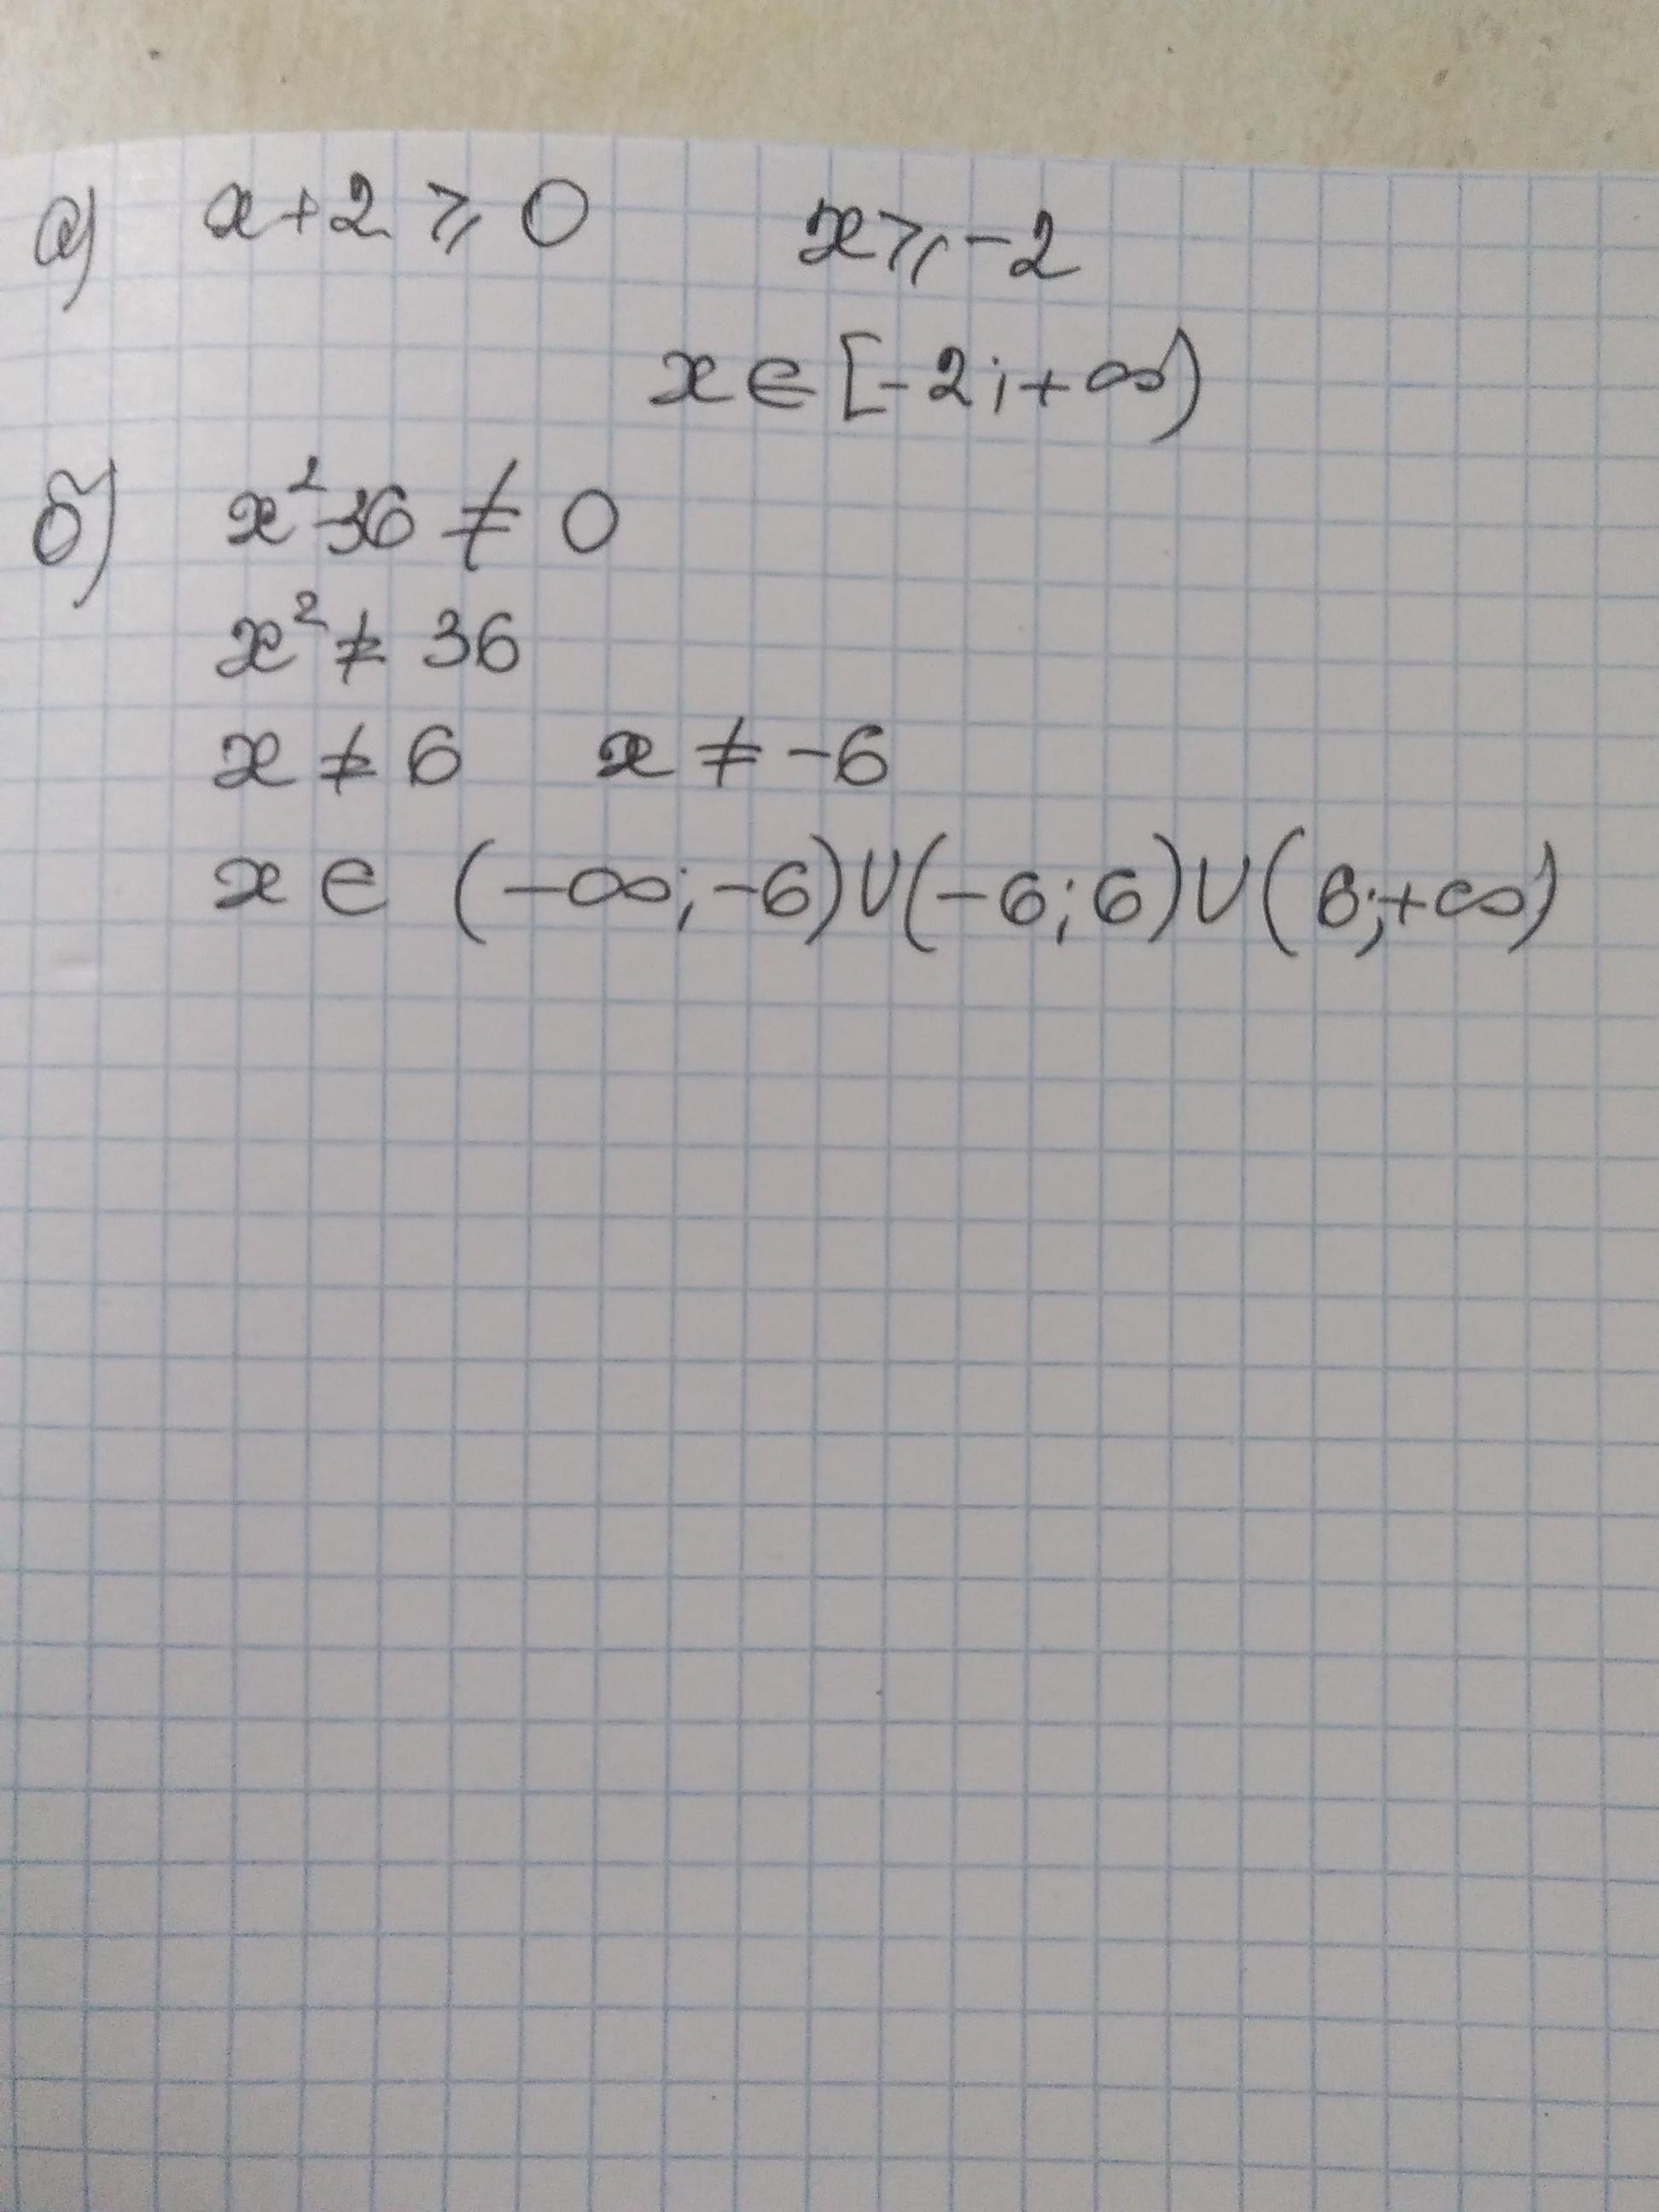 а) x+2 ⩾ 0 x ⩾ -2
x ∈ [-2; +∞)
б) x²-36 ≠ 0
x² ≠ 36
x ≠ 6 x ≠ -6
x ∈ (-∞; -6)∪(-6; 6)∪(6; +∞)